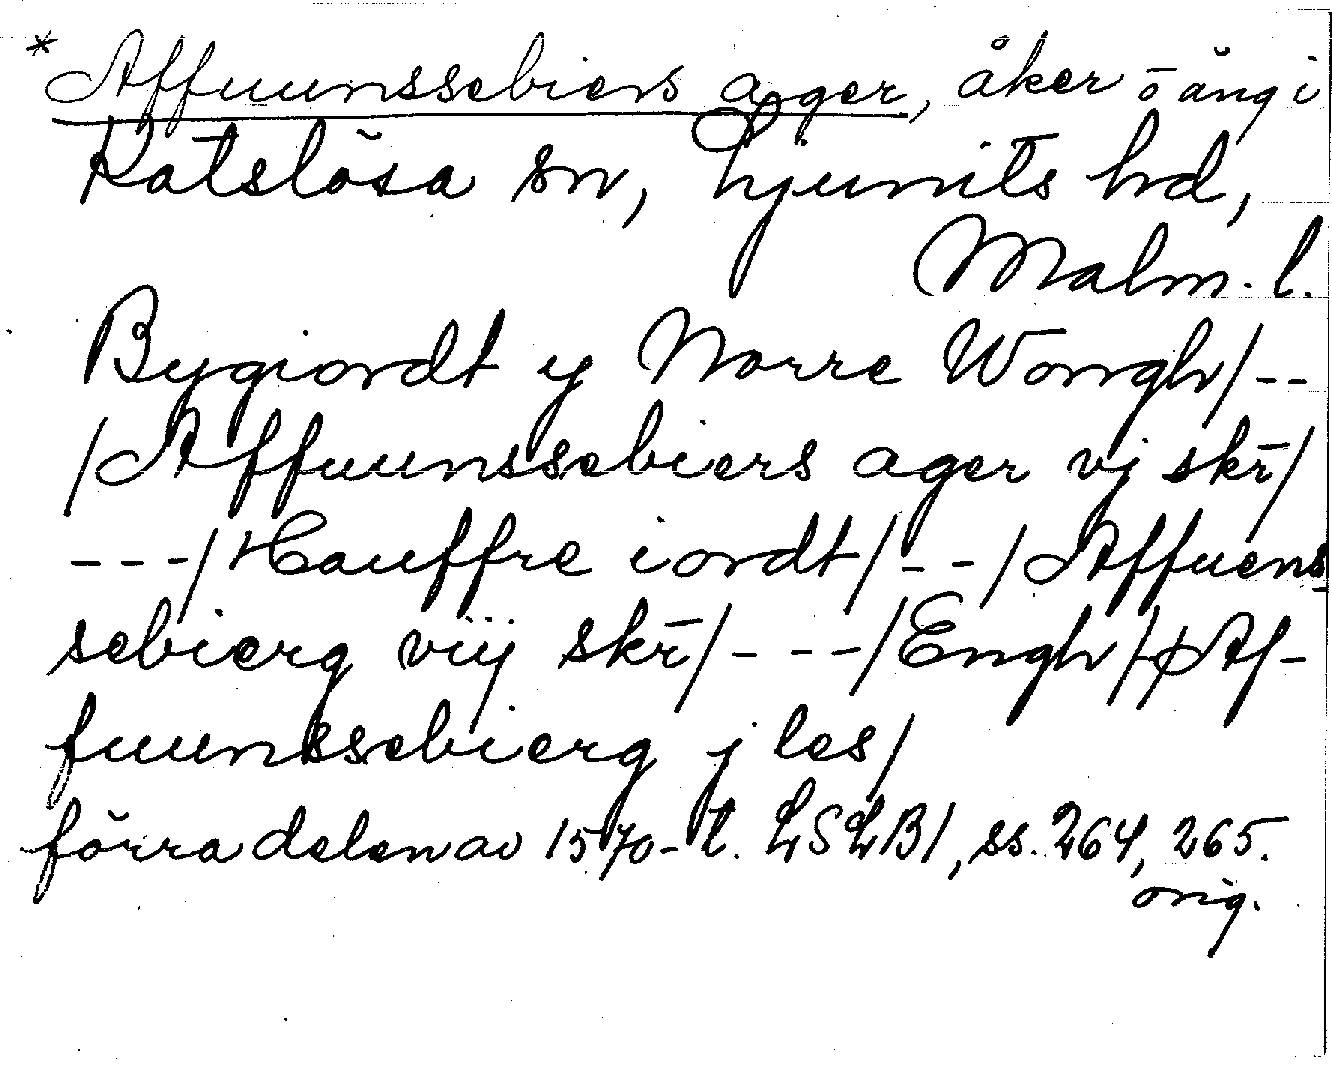 * Affuunssebiers ager, åker o äng i
Katslösa sn, Ljunits hd,
Malm. l.
Bygiordt y Norre Wongh/--
/Affuunssebiers ager vj skr/
---/Hauffre iordt/--/Affuens
sebierg viij skr/---/Engh/Af-
fuunssebierg j les/
förra delen av 1570-t. LSLB1, ss. 264, 265.
orig.